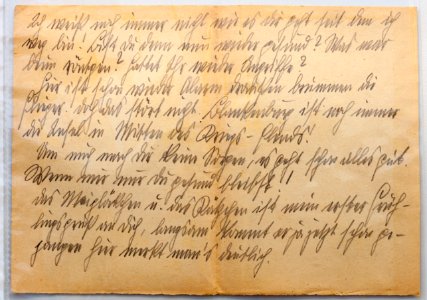 Ich weiß noch immer nicht wie es dir geht seit dem ich
weg bin! Bist du denn nun wieder gesund? Was war
beim röntgen? Hattet Ihr wieder Angriffe?
Hier ist schon wieder Alarm draußen brummen die
Flieger. doch das stört nicht. Blankenburg ist noch immer
die Insel in Mitten des Kriegs-Elends!
Um mich mach dir keine Sorgen, es geht schon alles gut.
Wenn nun nur du gesund bleibst!!
das Maiglöckchen u. das Kätzchen ist mein erster Früh-
lingsgruß an dich, langsam kommt er ja jetzt schon ge-
gangen hier merkt man's deutlich.